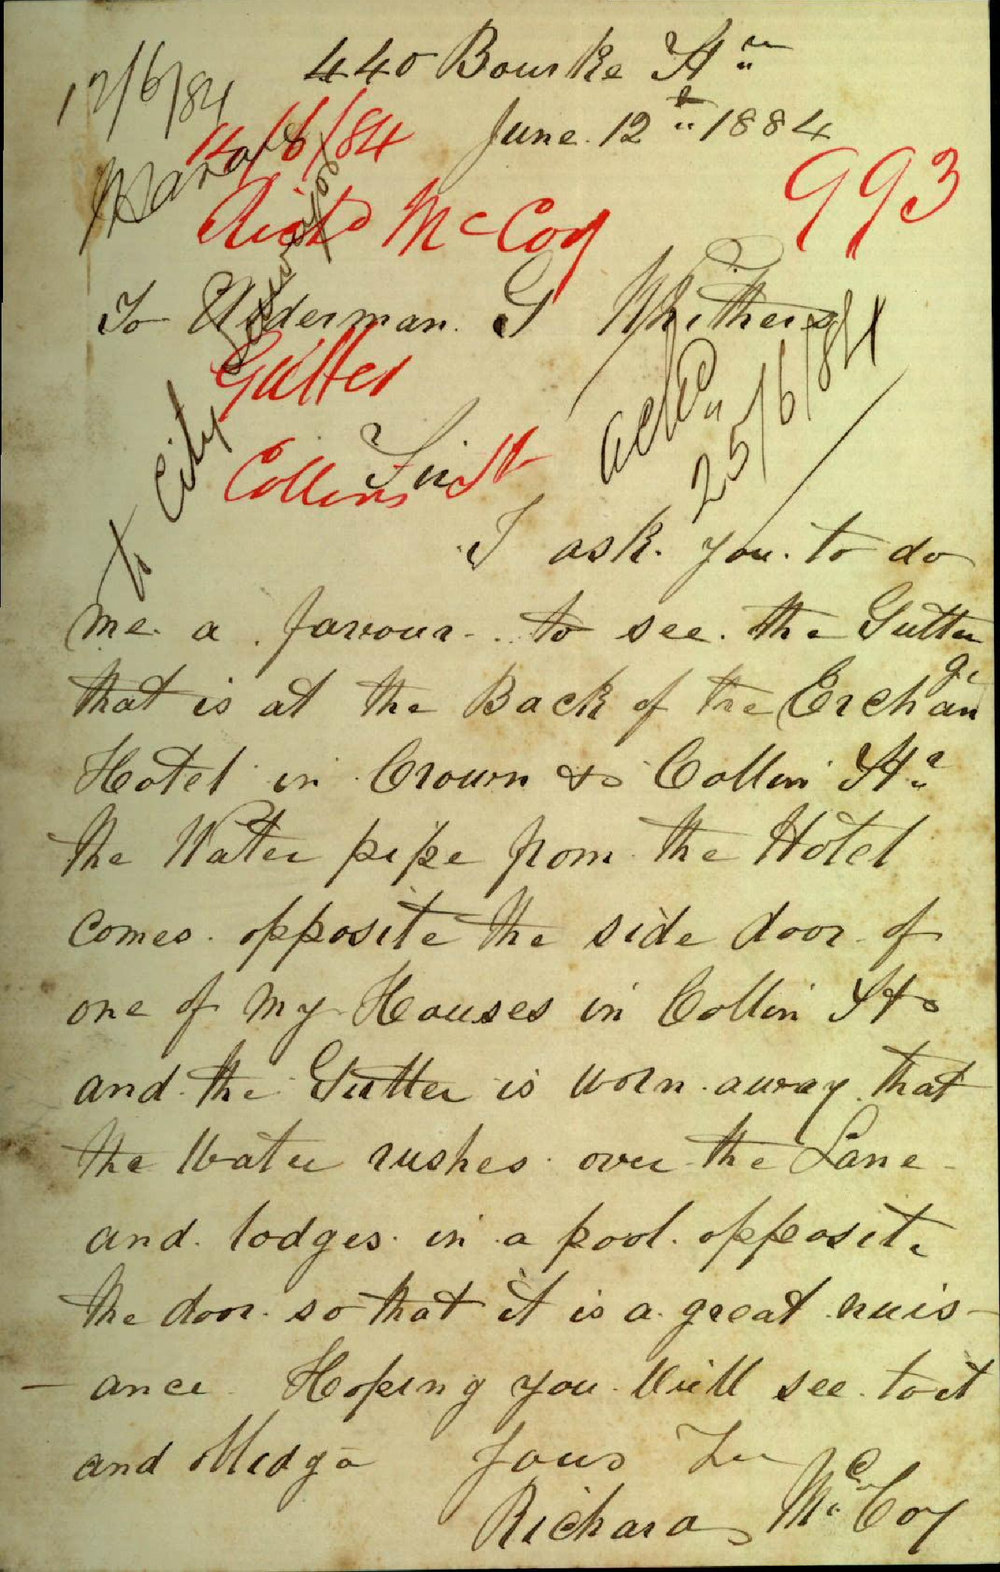 440 Bourke St
12/6/84
June 12th 1884
14/6/84
993
Richd McCoy
To Alderman G Withers
Gutter
ackd
25/6/84
to City Surveyor
Collins St
Sir
I ask you to do
me a favour to see the Gutter
that is at the Back of the Exchange
Hotel in Crown & Collin St
the Water pipe from the Hotel
comes opposite the side door of
one of my Houses in Collin St
and the Gutter is worn away that
the Water rushes over the Lane
and lodges in a pool opposite
the door so that it is a great nuis-
-ance Hoping you will see to it
and Oblidge Yours Tr
Richard McCoy